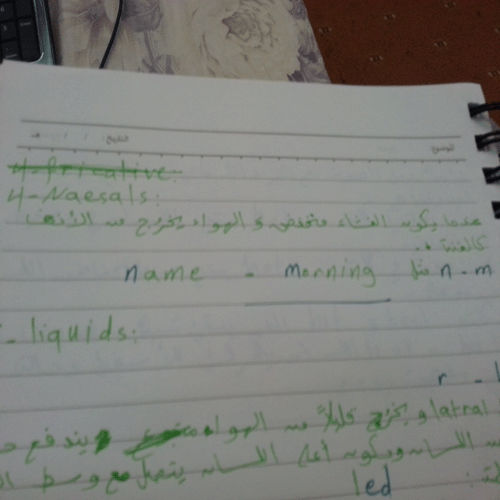 الموضوع: التاريخ: / / هـ
4-Fricative:
4-Naesals:
عندما يكون الغشاء منخفض و الهواء يخرج من الأنف
كالغنة
n - m مثل morning - name
- liquids:
r - l
latral و يخرج قليلاً من الهواء يندفع
اللسان ويكون أعلى اللسان يتصل مع وسط
led